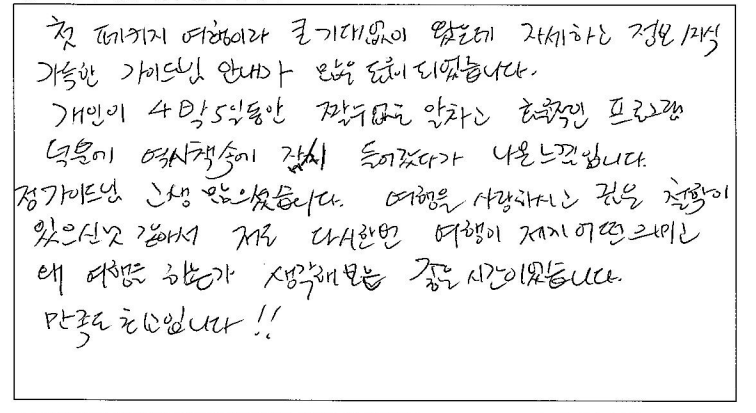 첫 페키지 여행이라 큰 기대없이 왔는데 자세하는 정보/지식
가득한 가이드님 안내가 많은 도움이 되었습니다.
개인이 4박5일동안 짤수없는 알차고 효율적인 프로그램
덕분에 역사책속에 잠시 들어갔다가 나온 느낌입니다.
정가이드님 고생 많으셨습니다. 여행을 사랑하시고 깊은 철학이
있으신것 같아서 저도 다시한번 여행이 제게 어떤 의미고
왜 여행을 하는가 생각해보는 좋은 시간이었습니다.
만족도 최고입니다!!